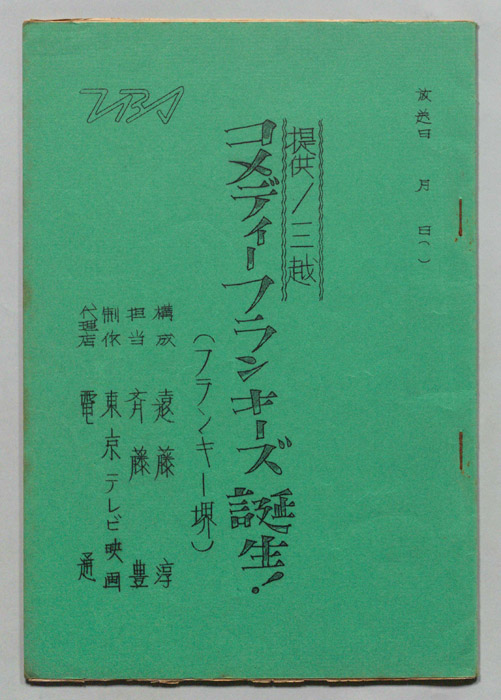 放送日　月　日（　）
提供／三越
コメディーフランキーズ誕生！
（フランキー堺）
構成　遠藤　淳
担当　斉藤　豊
制作　東京テレビ映画
代理店　電通